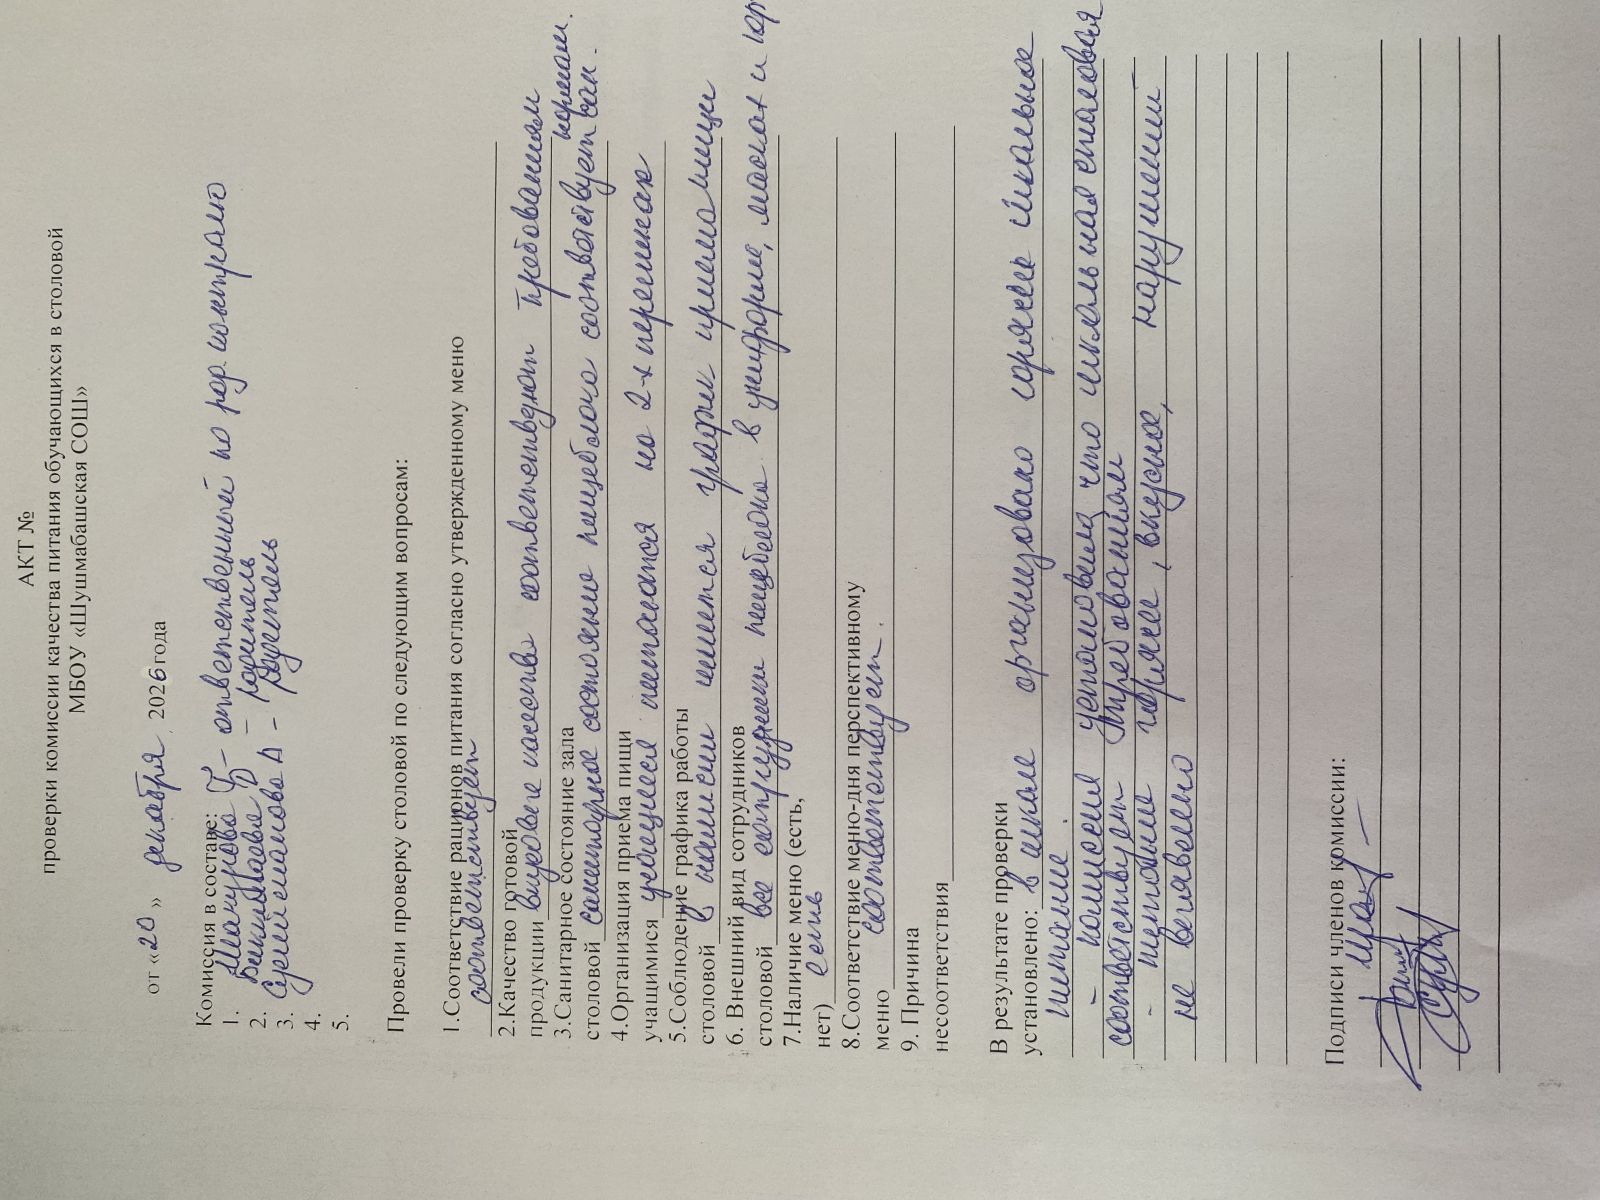 АКТ №
проверки комиссии качества питания обучающихся в столовой
МБОУ «Шушмабашская СОШ»
от «20» декабря 2026 года
Комиссия в составе:
1. - ответственный по род. контролю
2. - родитель
3. Сулейманова А - родитель
4.
5.
Провели проверку столовой по следующим вопросам:
1.Соответствие рационов питания согласно утвержденному меню
соответствует
2.Качество готовой
продукции вкусовые качества соответствуют требованиям
3.Санитарное состояние зала нормам.
столовой санитарное состояние пищеблока соответствует сан.
4.Организация приема пищи
учащимися учащиеся питаются на 2-х переменах
5.Соблюдение графика работы
столовой в наличии имеется график приема пищи
6. Внешний вид сотрудников
столовой все сотрудники пищеблока в униформе, масках и
7.Наличие меню (есть,
нет) есть
8.Соответствие меню-дня перспективному
меню соответствует.
9. Причина
несоответствия
В результате проверки
установлено: в школе организовано горячее школьное
питание.
- комиссия установила, что школьная столовая
соответствует требованиям
- питание горячее, вкусное, нарушений
не выявлено
Подписи членов комиссии: